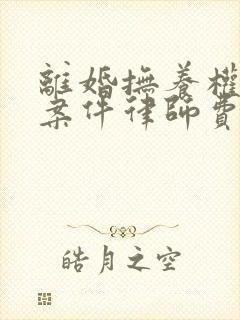 離婚撫養權
案件律師費
皓月之空